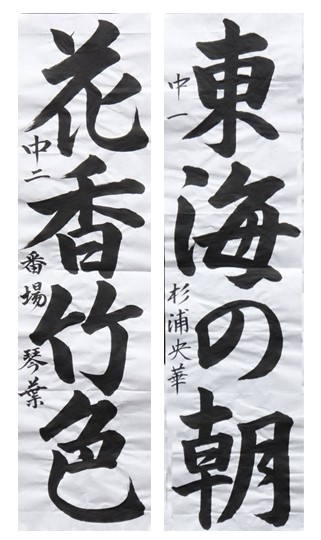 東海の朝
中一 杉浦央華
花香竹色
中二 番場琴葉